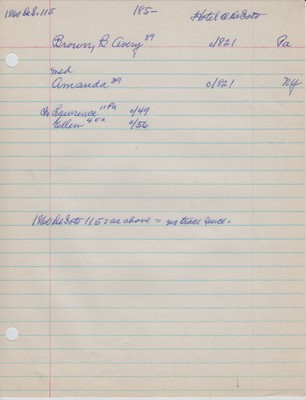 1860 DeS. 115 185- Hotel @ DeSoto
Brown, B Avery 39 c/1821 Pa
md
Amanda 39 c/1821 NY
ch Lawrence 11 Pa c/49
Ellen 4 c/56
1860 DeSoto 115: as above = no trace since.